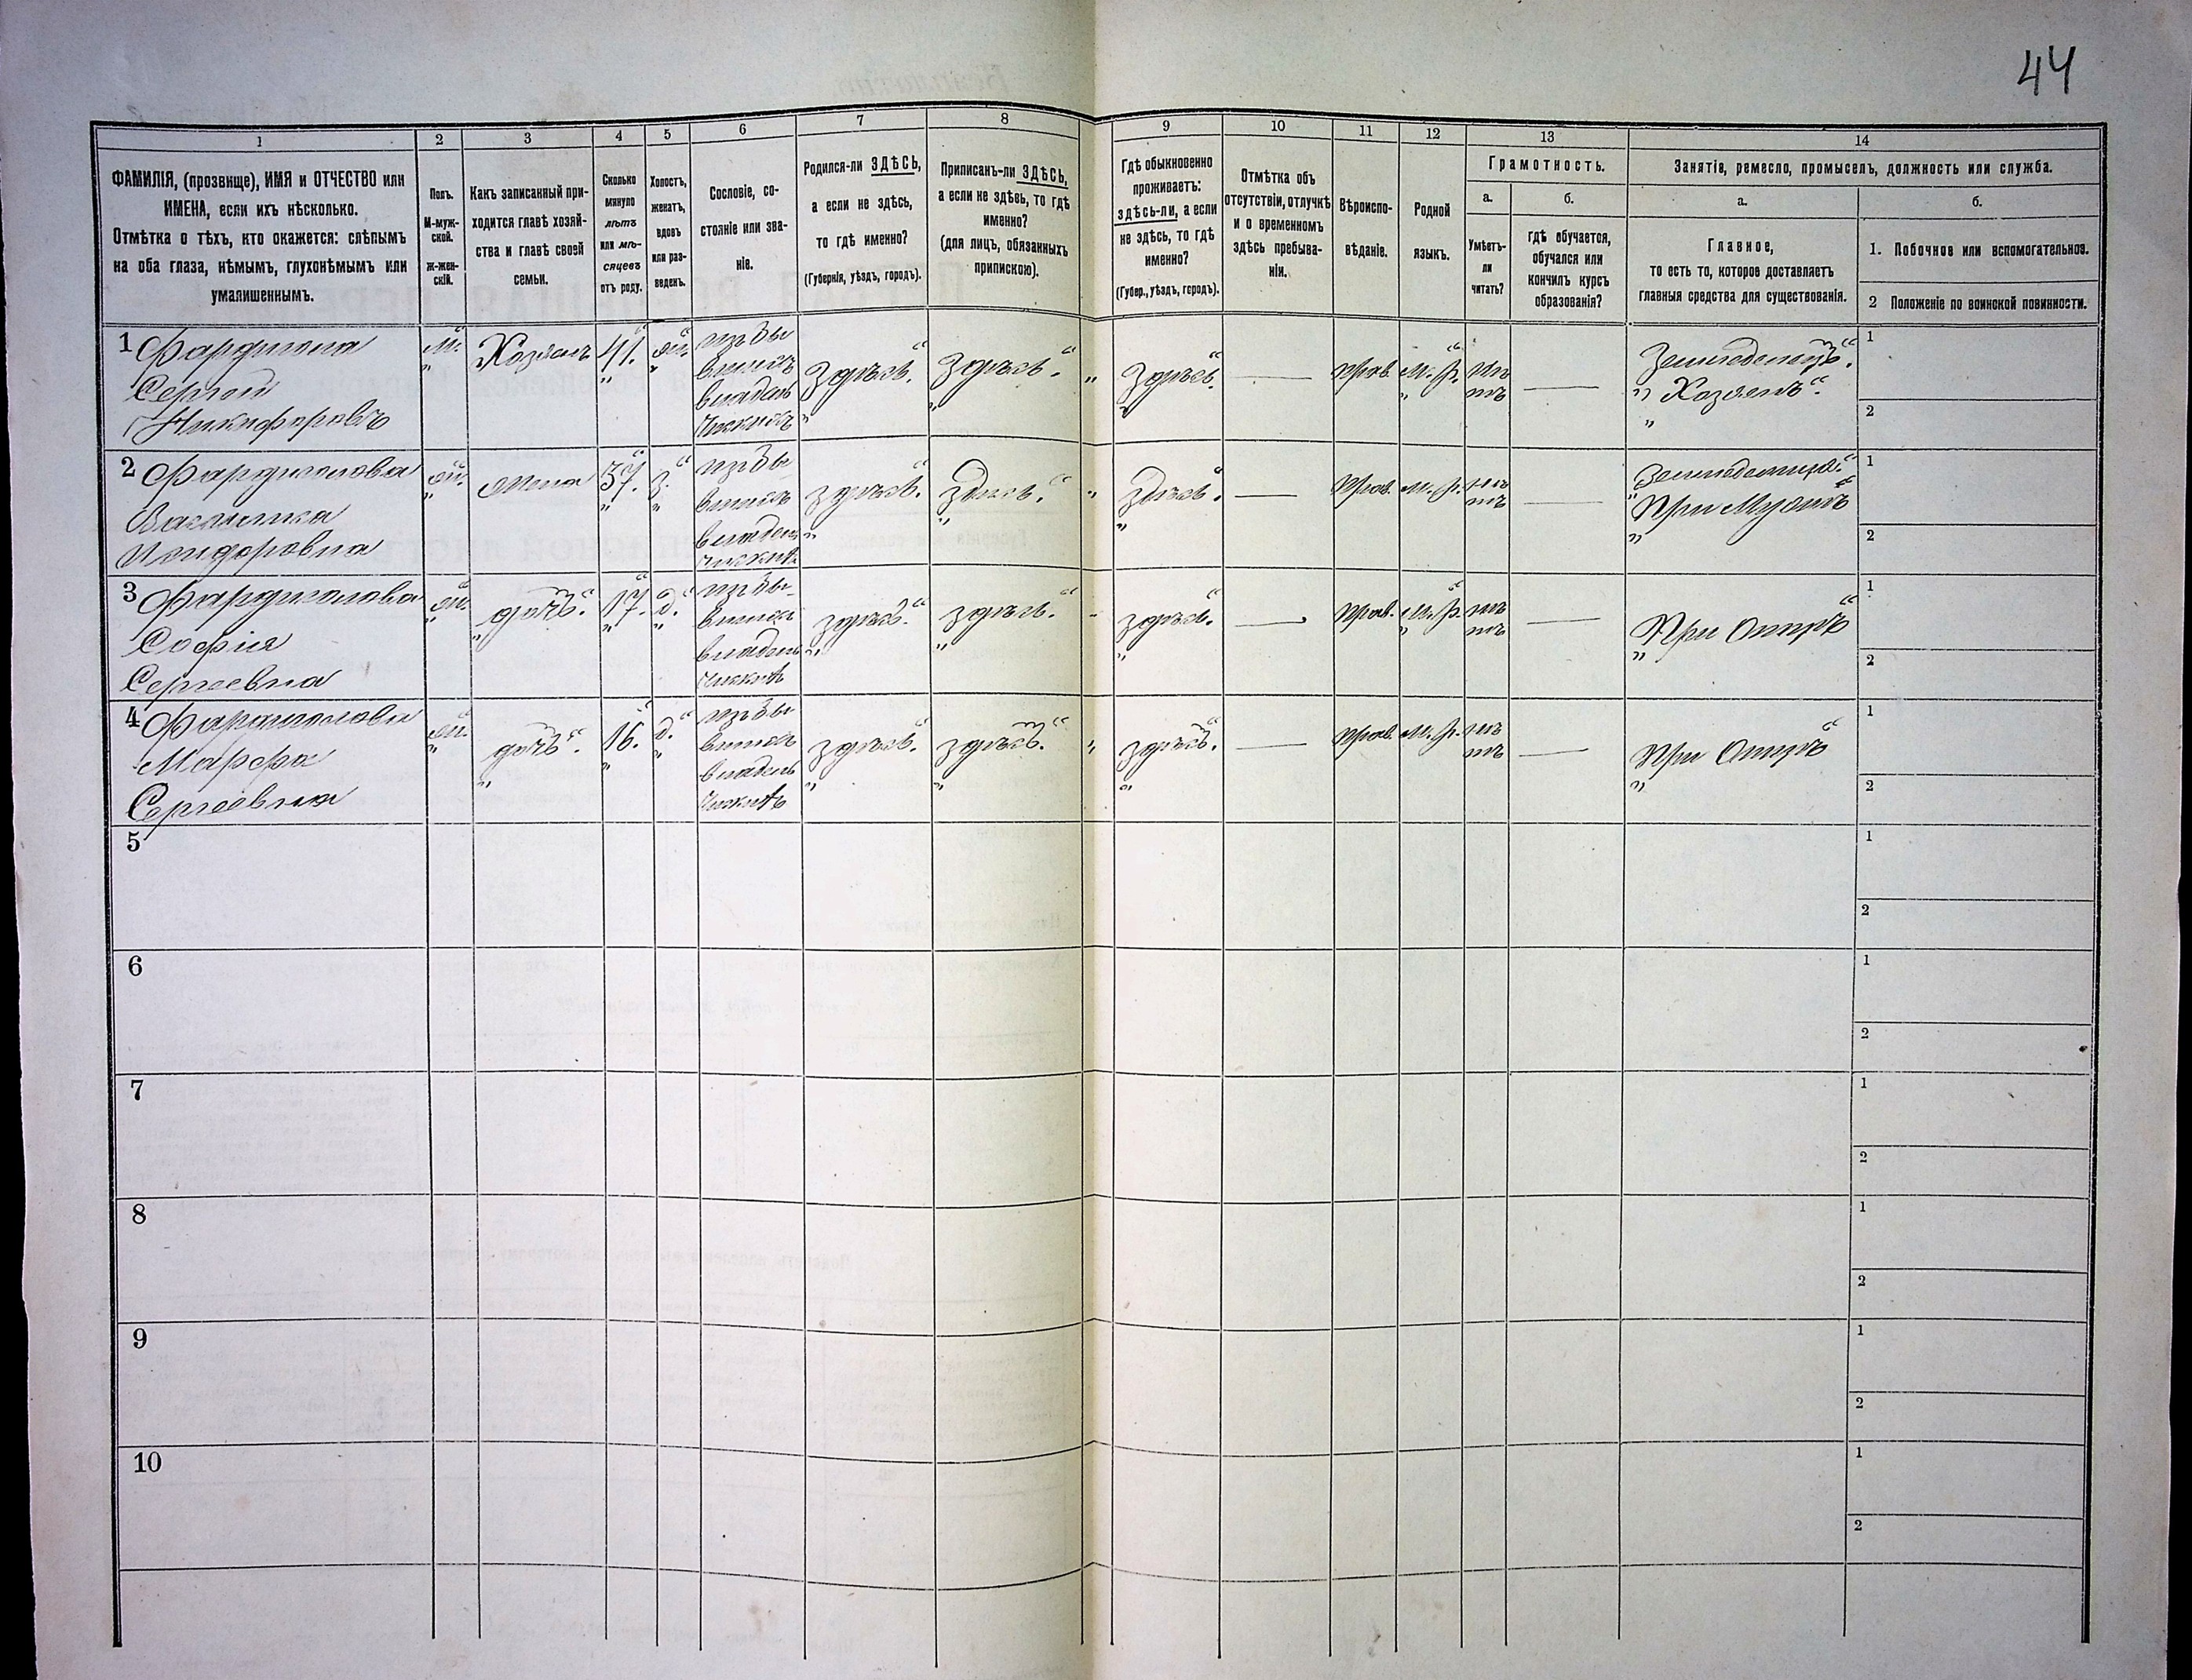 44
1
2
3
4
5
6
7
8
9
10
11
12
13
14
ФАМИЛІЯ, (прозвище), ИМЯ и ОТЧЕСТВО или
ИМЕНА, если ихъ нѣсколько.
Отмѣтка о тѣхъ, кто окажется: слѣпымъ
на оба глаза, нѣмымъ, глухонѣмымъ или
умалишеннымъ.
Полъ.
М-муж-
ской.
ж-жен-
скій.
Какъ записанный при-
ходится главѣ хозяй-
ства и главѣ своей
семьи.
Сколько
минуло
лѣтъ
или мѣ-
сяцевъ
отъ роду.
Холостъ,
женатъ,
вдовъ
или раз-
веденъ.
Сословіе, со-
стояніе или зва-
ніе.
Родился-ли ЗДѢСЬ,
а если не здѣсь,
то гдѣ именно?
(Губернія, уѣздъ, городъ).
Приписанъ-ли ЗДѢСЬ,
а если не здѣсь, то гдѣ
именно?
(для лицъ, обязанныхъ
припискою).
Гдѣ обыкновенно
проживаетъ:
здѣсь-ли, а если
не здѣсь, то гдѣ
именно?
(Губер., уѣздъ, городъ).
Отмѣтка объ
отсутствіи, отлучкѣ
и о временномъ
здѣсь пребыва-
ніи.
Вѣроиспо-
вѣданіе.
Родной
языкъ.
Грамотность.
а.
Умѣетъ-
ли
читать?
б.
гдѣ обучается,
обучался или
кончилъ курсъ
образованія?
Занятія, ремесло, промыселъ, должность или служба.
а.
Главное,
то есть то, которое доставляетъ
главныя средства для существованія.
б.
1. Побочное или вспомогательное.
2 Положеніе по воинской повинности.
1
Сергей
Никифоровъ
м.
Хозяинъ
41.
Здѣсь.
Здѣсь.
Здѣсь.
Прав.
нѣ
тъ
Земледелецъ.
Хозяинъ.
1
2
2
Василиса
Исидоровна
ж.
жена
37.
з.
здѣсь.
Здѣсь.
Здѣсь.
Прав.
нѣ
тъ
При Мужѣ
1
2
3
Софія
Сергеевна
ж.
дочь.
17.
д.
здѣсь.
здѣсь.
здѣсь.
Прав.
нѣ
тъ
При Отцѣ
1
2
4
Марфа
Сергеевна
ж.
дочь.
16.
д.
здѣсь.
здѣсь.
здѣсь.
Прав.
нѣ
тъ
При Отцѣ
1
2
5
1
2
6
1
2
7
1
2
8
1
2
9
1
2
10
1
2